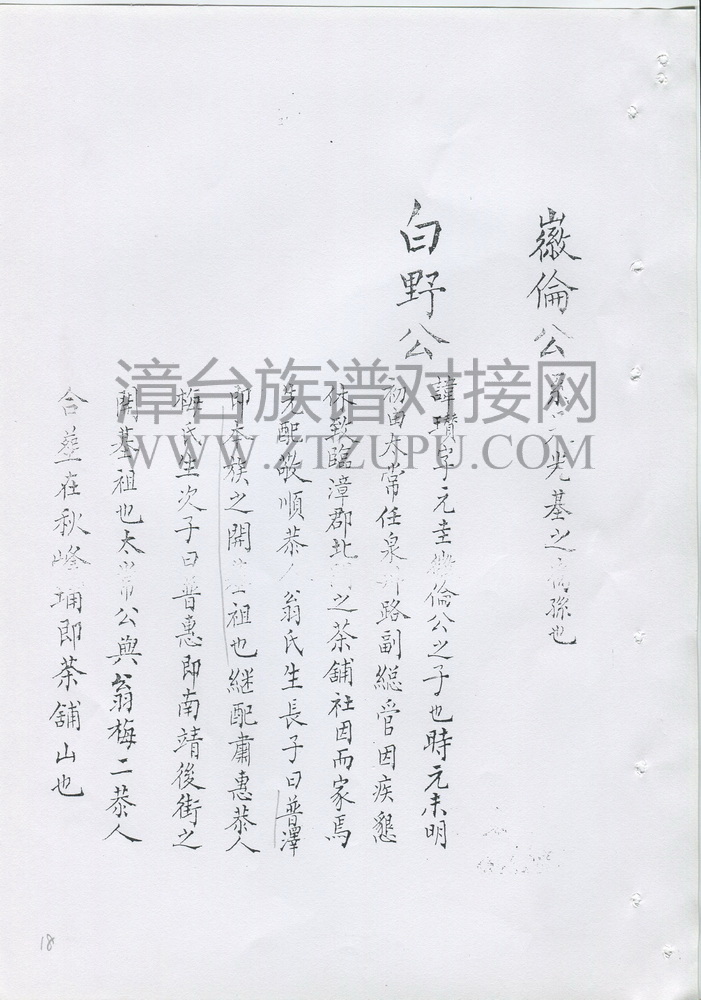 徽倫公
光基之孫也
白野公
諱瓚字元圭徽倫公之子也時元末明
初由太常任泉州路副總管因疾懇
休致臨漳郡北之茶舖社因而家焉
先配敬順恭人翁氏生長子曰普澤
即本族之開基祖也継配肅惠恭人
梅氏生次子曰普惠即南靖後街之
開基祖也太常公與翁梅二恭人
合塟在秋峰埔即茶舖山也
漳台族谱对接网
WWW.ZTZUPU.COM
18